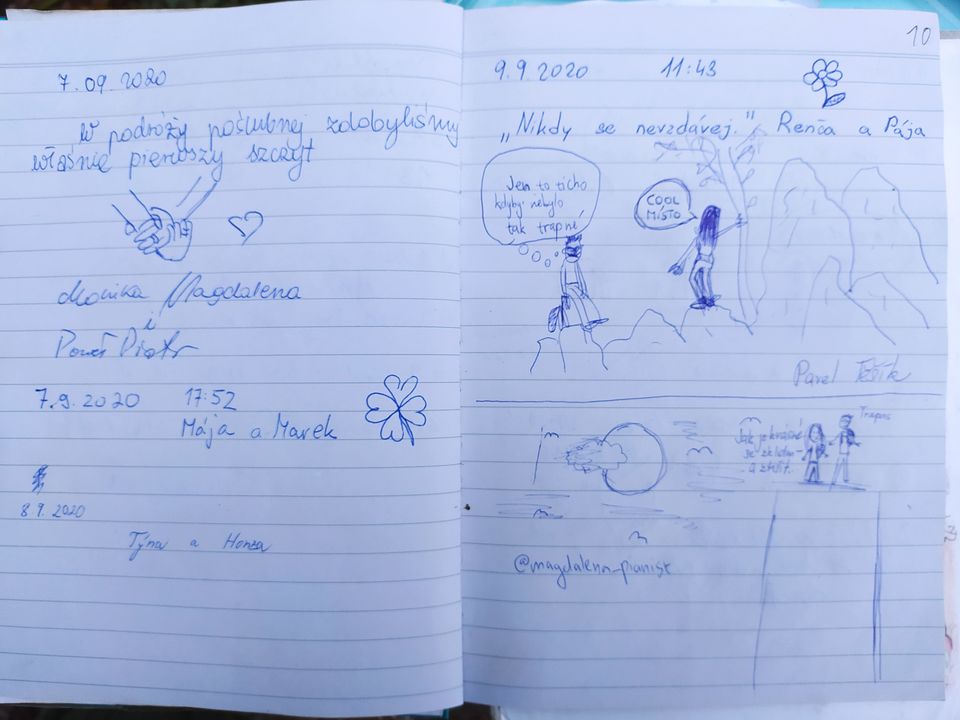 7.09.2020
W podróży poślubnej zdobyliśmy
właśnie pierwszy szczyt
Monika Magdalena
i
Paweł Piotr
7.9.2020 17:52
Mája a Marek
8 9. 2020
Týna a Honza
10
9.9.2020 11:43
„Nikdy se nevzdávej." Renča a Pája
Jen to ticho
kdyby nebylo
tak trapné
COOL
MÍSTO
Pavel
Trapas
Jak je krásné
se
a ztišit.
@magdalena_pianist